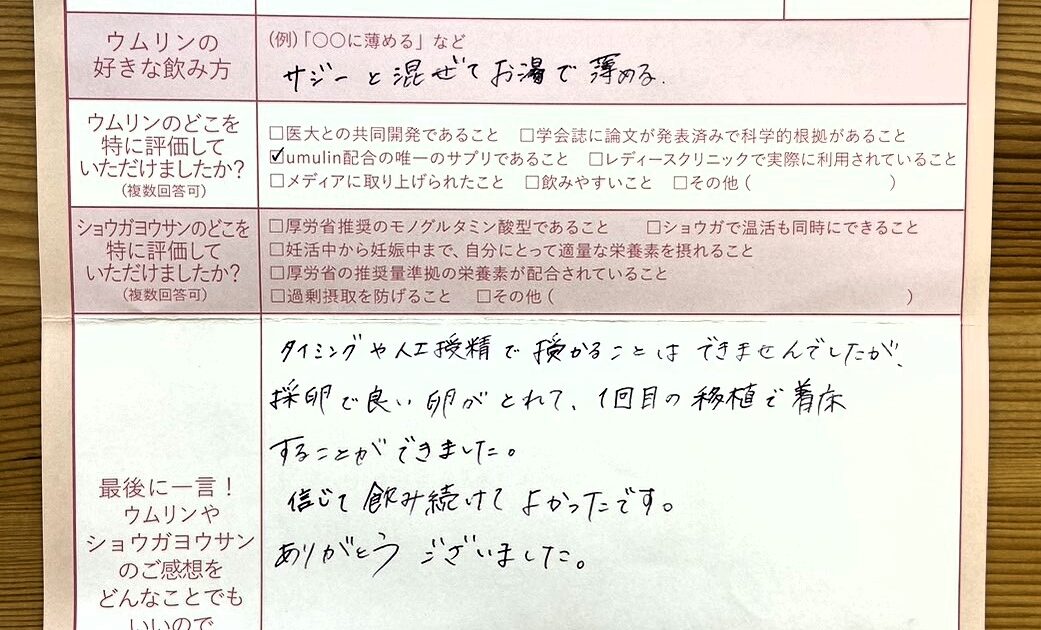 ウムリンの
好きな飲み方
(例)「〇〇に薄める」など
サジーと混ぜてお湯で薄める.
ウムリンのどこを
特に評価して
いただけましたか?
(複数回答可)
□医大との共同開発であること □学会誌に論文が発表済みで科学的根拠があること
☑umulin配合の唯一のサプリであること □レディースクリニックで実際に利用されていること
□メディアに取り上げられたこと □飲みやすいこと □その他( )
ショウガヨウサンのどこを
特に評価して
いただけましたか?
(複数回答可)
□厚労省推奨のモノグルタミン酸型であること □ショウガで温活も同時にできること
□妊活中から妊娠中まで、自分にとって適量な栄養素を摂れること
□厚労省の推奨量準拠の栄養素が配合されていること
□過剰摂取を防げること □その他( )
最後に一言!
ウムリンや
ショウガヨウサン
のご感想を
どんなことでも
いいので
タイミングや人工授精で授かることはできませんでしたが、
採卵で良い卵がとれて、1回目の移植で着床
することができました。
信じて飲み続けてよかったです。
ありがとうございました。